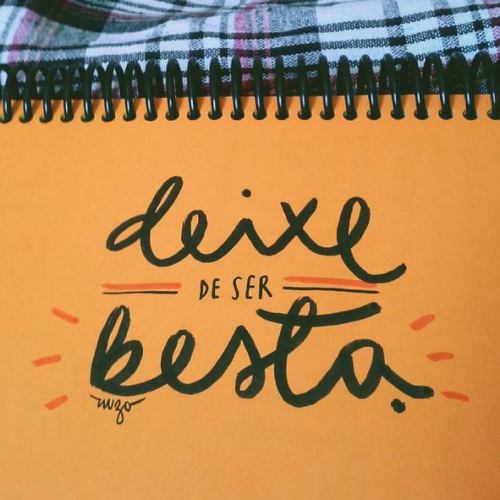 deixe
DE SER
besta.